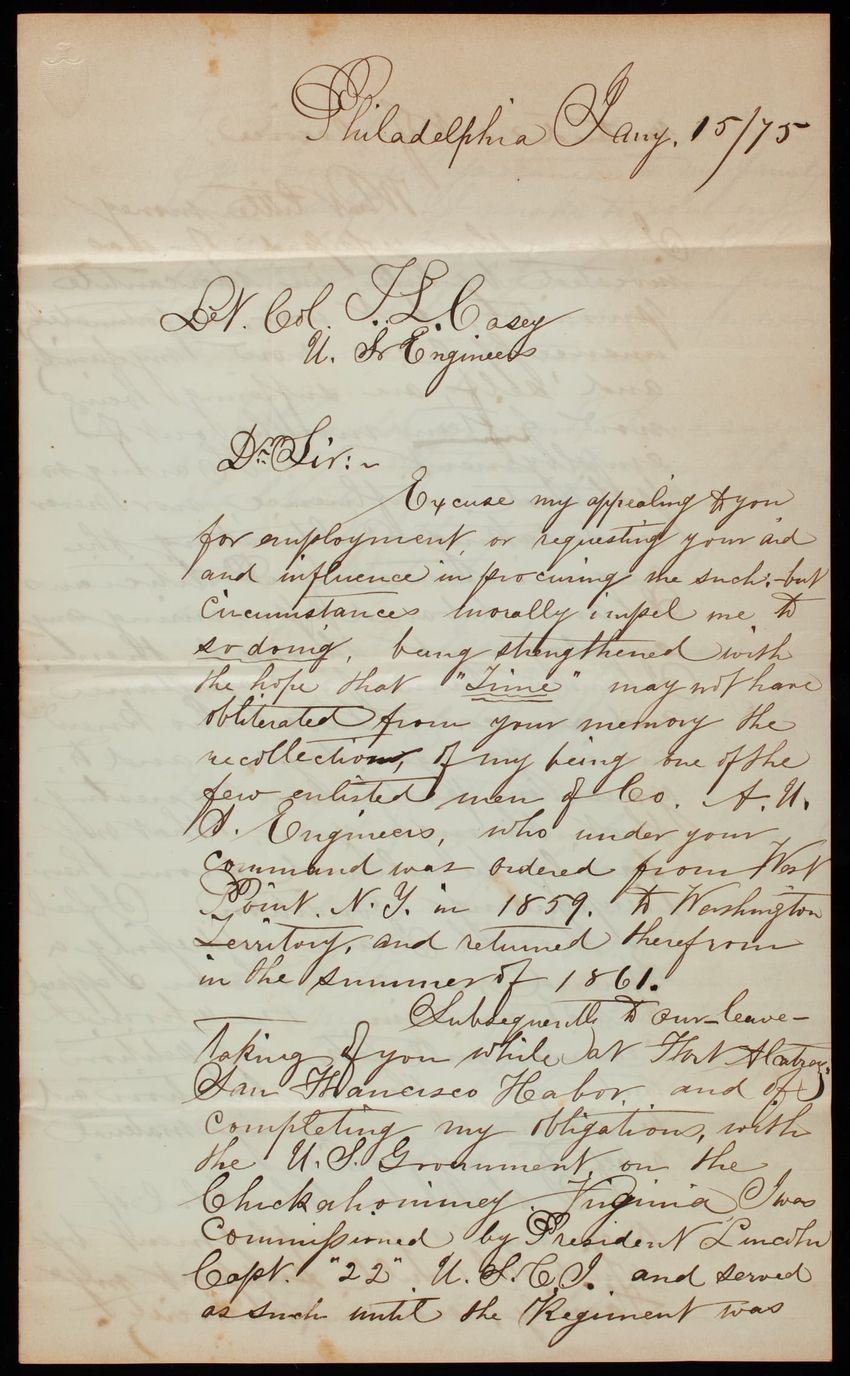 Philadelphia Jany. 15/75
Lt. Col. T. L. Casey
U. S. Engineers
Dr. Sir:~
Excuse my appealing to you
for employment, or requesting your aid
and influence in procuring me such:-but
Circumstances morally impel me to
so doing, being strengthened with
the hope that "Time" may not have
obliterated from your memory the
recollection, of my being one of the
few enlisted men of Co. A. U.
S. Engineers, who under your
command was ordered from West
Point. N.Y. in 1859. to Washington
Territory, and returned therefrom
in the summer of 1861.
Subsequently to our-leave-
taking of you while at Fort Alcatraz,
San Francisco Habor, and of
completing my obligations, with
the U.S. Government, on the
Chickahominey Virginia, I was
Commissioned by President Lincoln
Capt. "22" U.S.C.I. and served
as such until the Regiment was